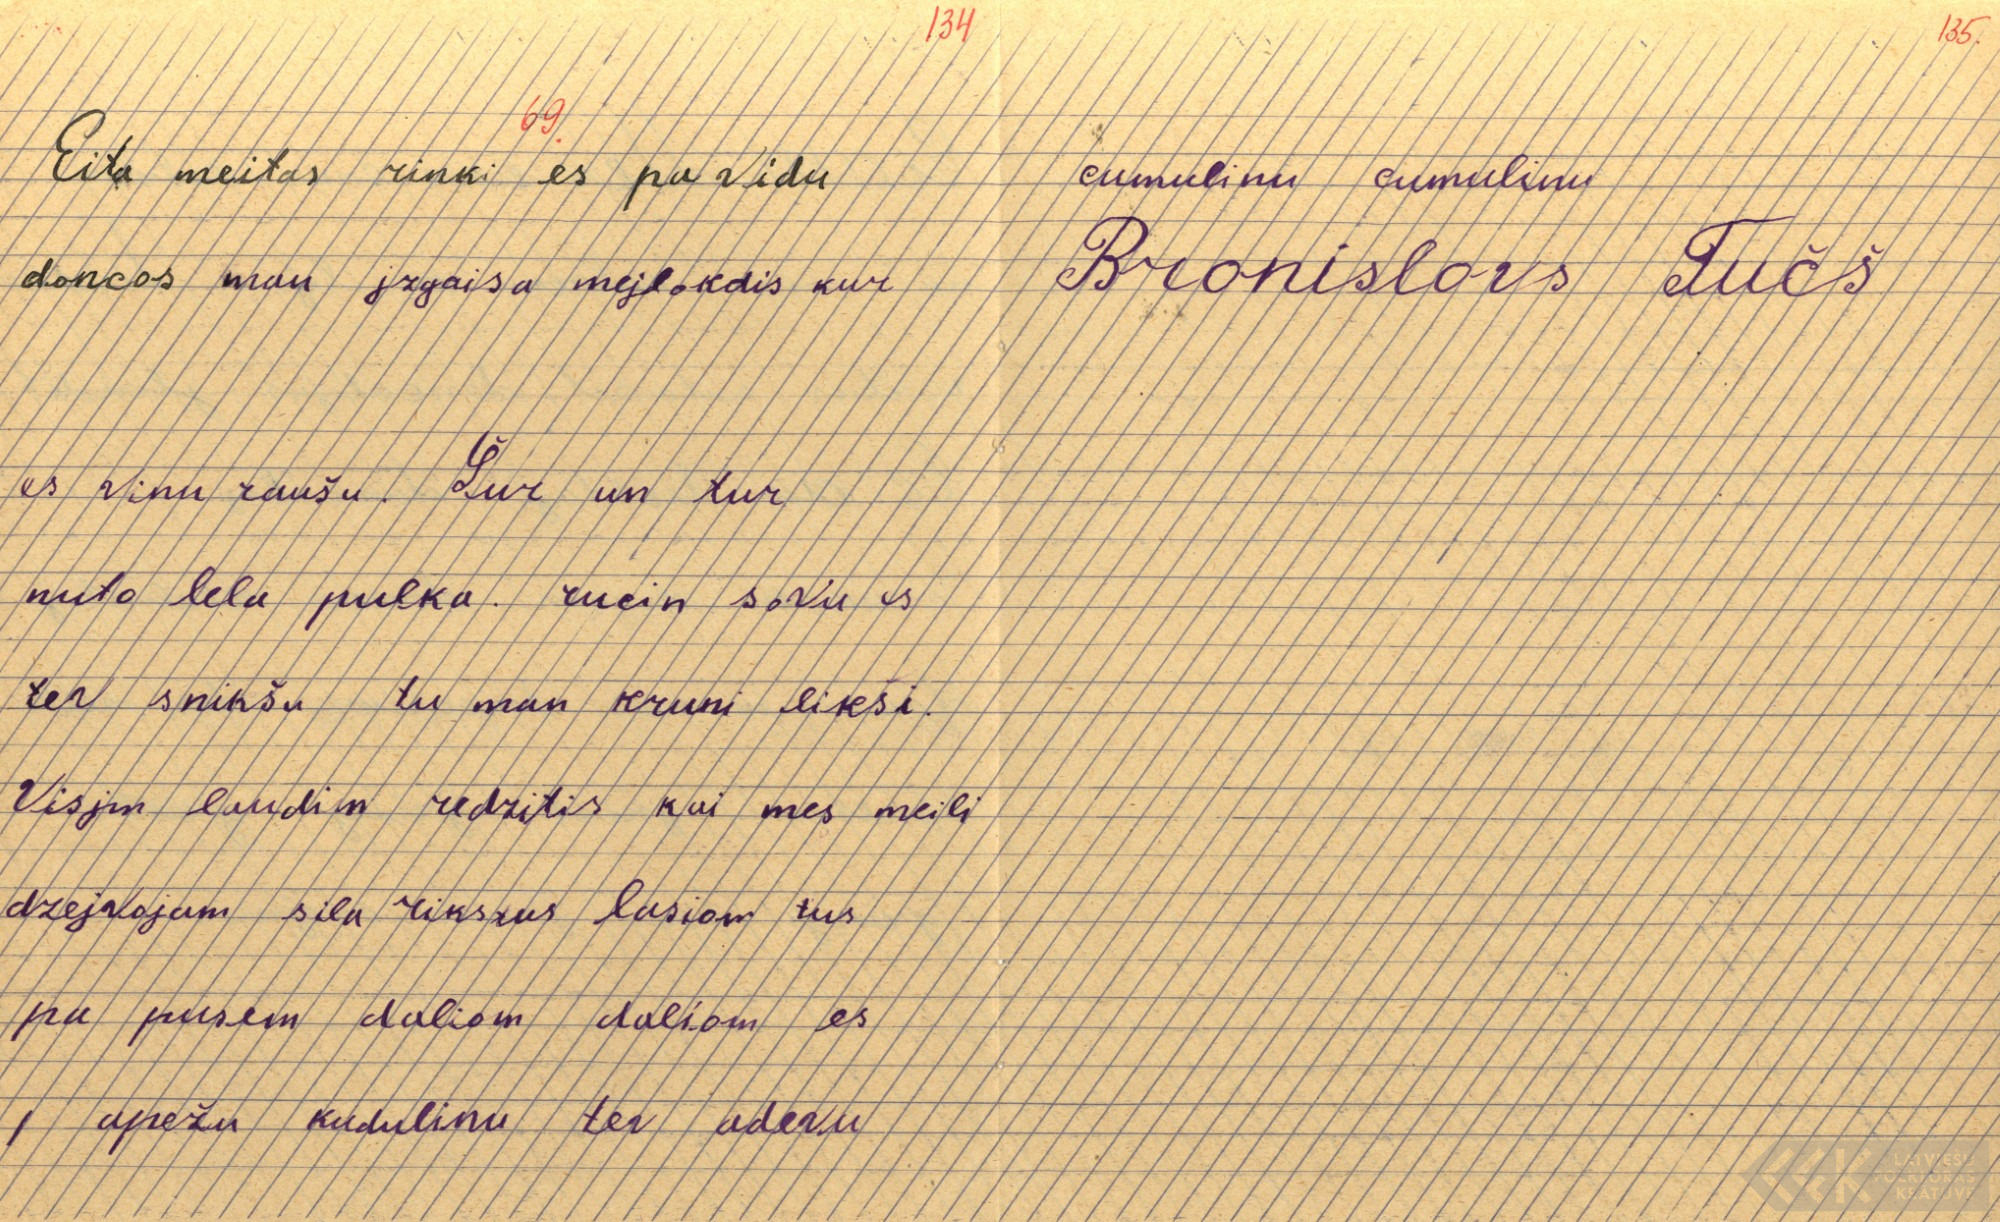 134
69.
Eita meitas rinki es pa vidu
doncos man jzgaisa mejlokdis kur
es vinu raušu. Šur un tur
nuto lela pulka. rucin sovu es
tev snikšu tu man kruni likši.
Visjm laudim redzitis kai mes meili
dzejvojam sila rikszus lasiom tus
pa pusem daliom daliom es
apežu kudulinu tev adevu
135.
cumulinu cumulinu
Bronislovs Tučš
LATVIEŠU
FOLKLORAS
KRĀTUVE